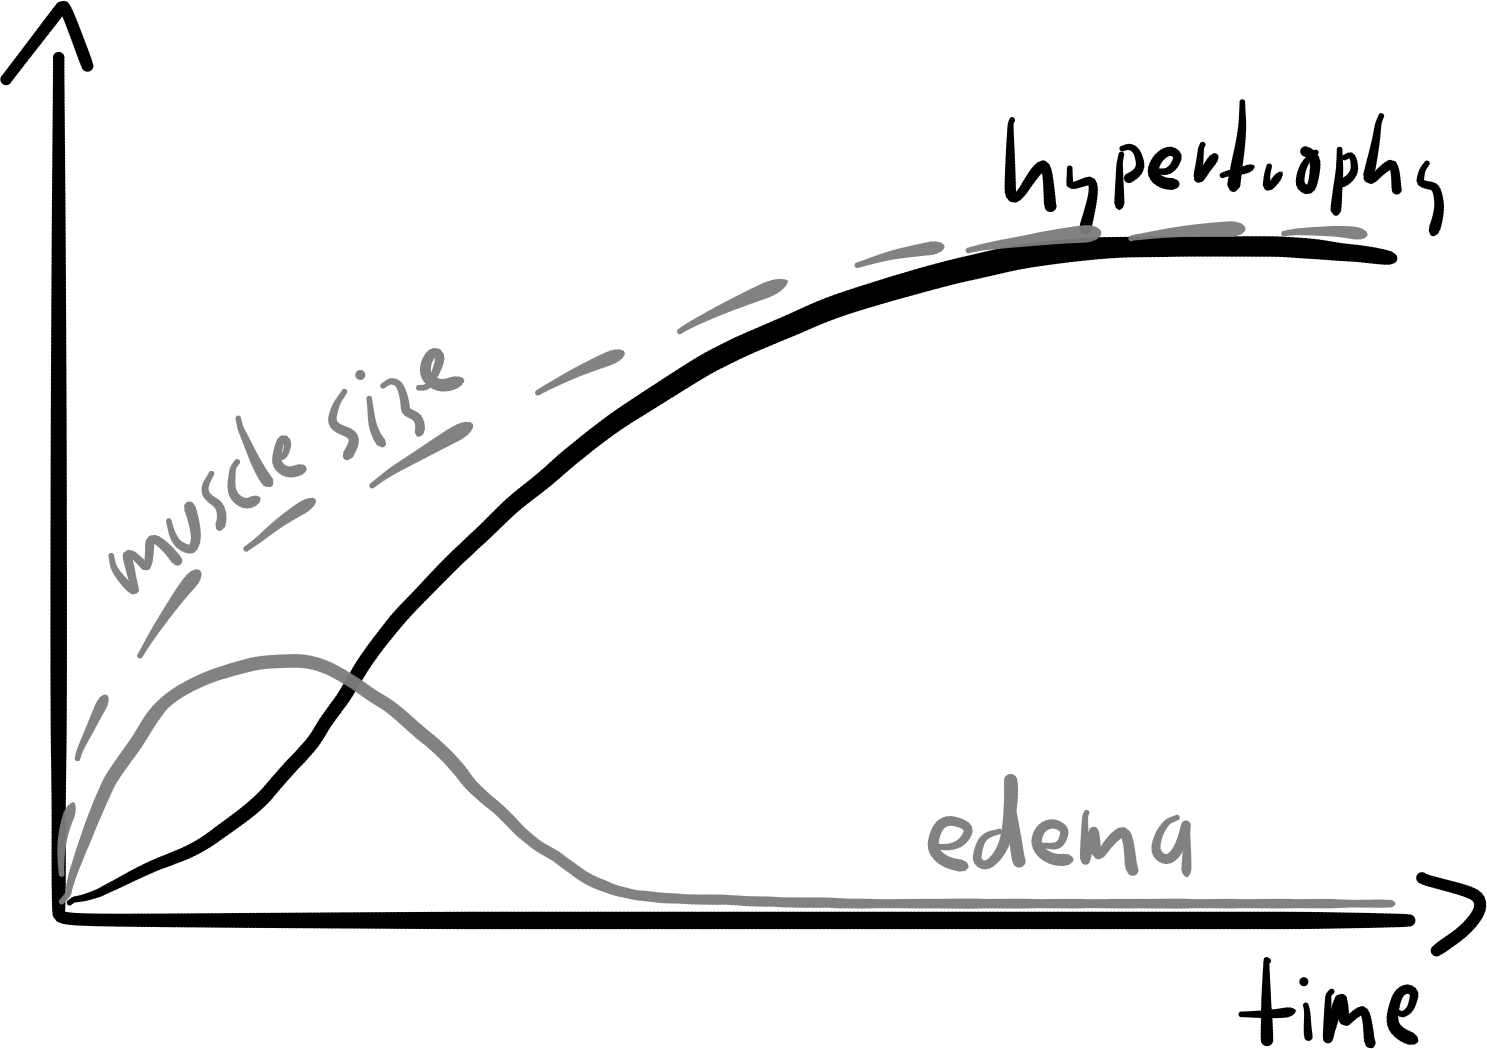 hypertrophy
muscle size
edema
time